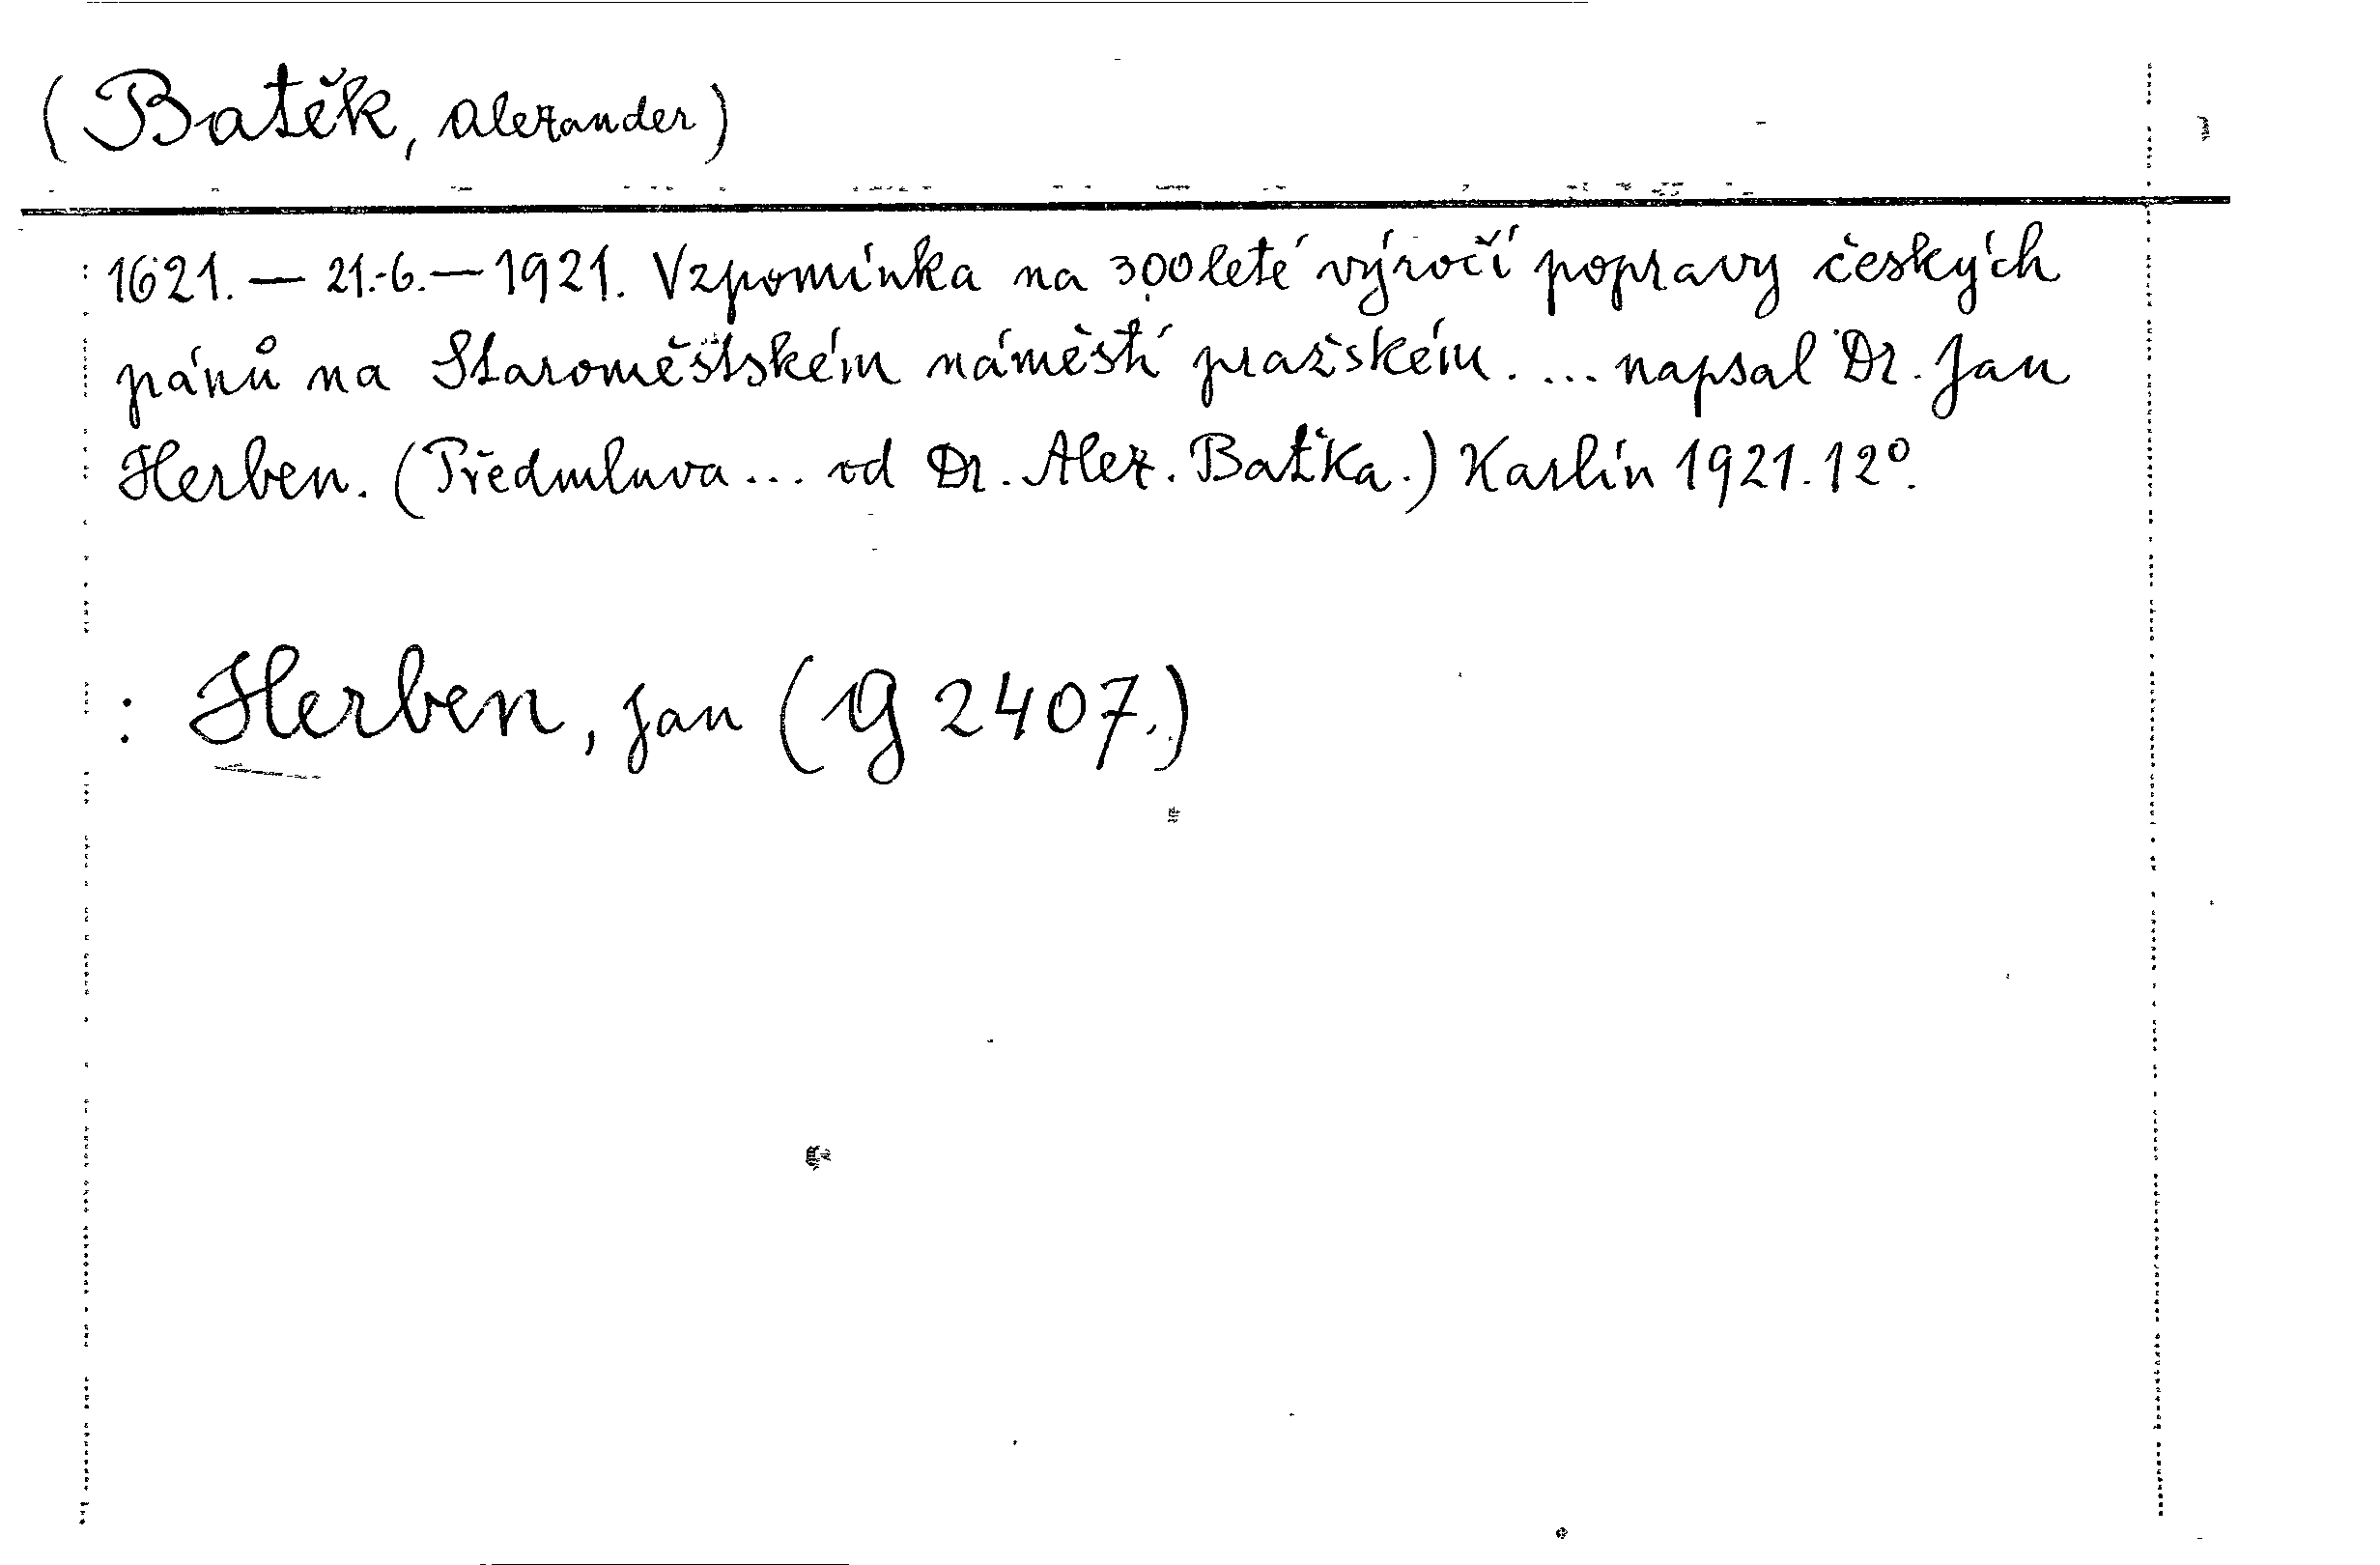 (Batěk, Alexander)
1621. — 21.-6. — 1921. Vzpomínka na 300leté výročí popravy českých
pánů na Staroměstském náměstí pražském. ... napsal Dr. Jan
Herben. (Předmluva ... od Dr. Alex. Baťka.) Karlín 1921. 12°.
: Herben, Jan (G 2407.)